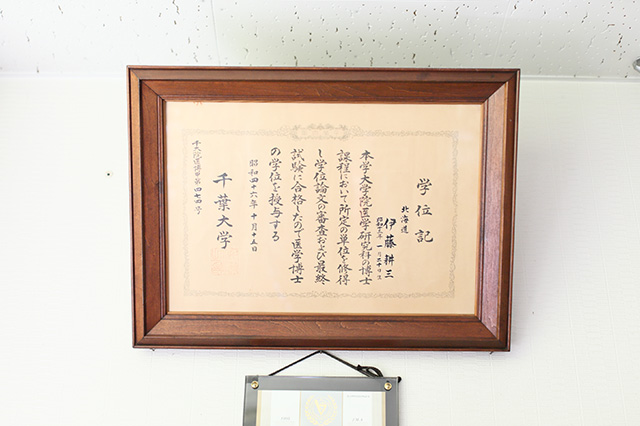 学位記
北海道
伊藤耕三
本学大学院医学研究科の博士
課程において所定の単位を修得
し学位論文の審査および最終
試験に合格したので医学博士
の学位を授与する
昭和四十六年十月十五日
千葉大学